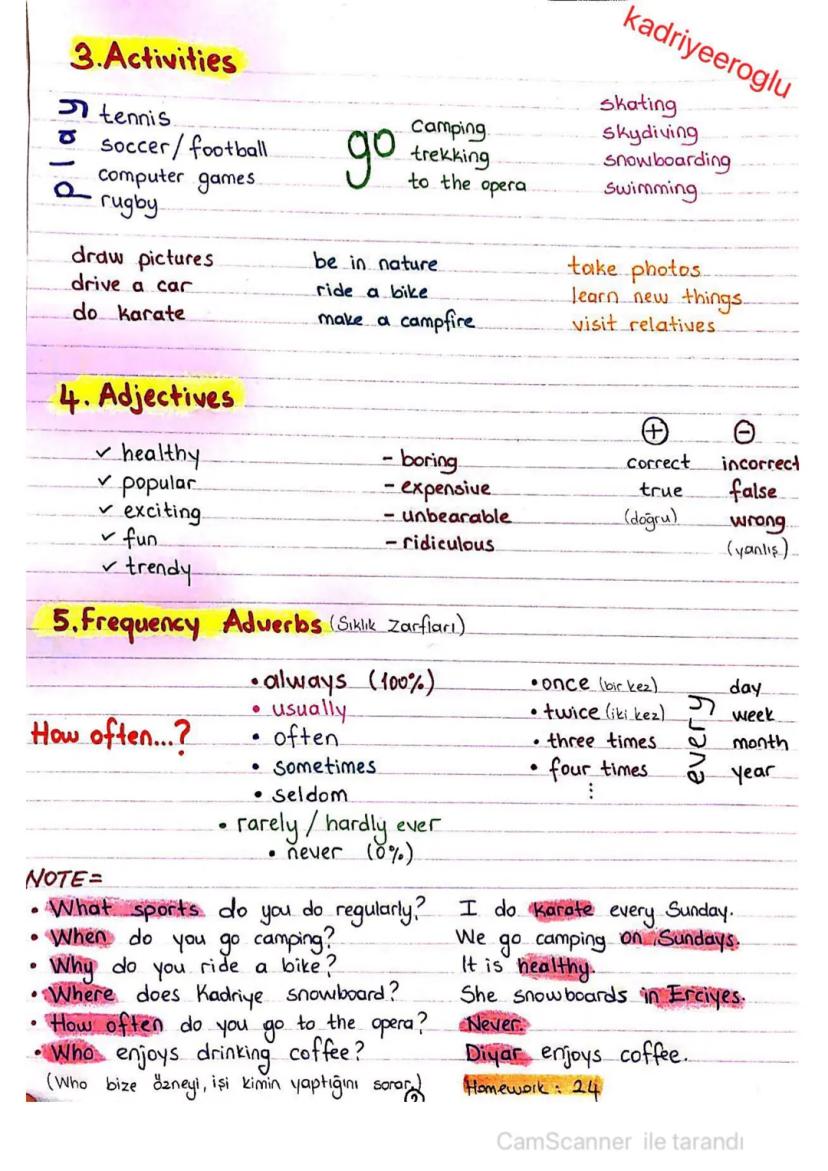 kadriyeeroglu
3.Activities
play
tennis
soccer/football
computer games
rugby
go
camping
trekking
to the opera
skating
skydiving
snowboarding
swimming
draw pictures
drive a car
do karate
be in nature
ride a bike
make a campfire
take photos
learn new things
visit relatives
4. Adjectives
✓ healthy
✓ popular
✓ exciting
✓ fun
✓ trendy
- boring
- expensive
- unbearable
- ridiculous
+
correct
true
(doğru)
-
incorrect
false
wrong
(yanlış)
5.Frequency Adverbs (Sıklık Zarfları)
How often...?
• always (100%)
• usually
• often
• sometimes
• seldom
• rarely / hardly ever
• never (0%)
• once (bir kez)
• twice (iki kez)
• three times
• four times
⋮
every
day
week
month
year
NOTE=
• What sports do you do regularly? I do karate every Sunday.
• When do you go camping? We go camping on Sundays.
• Why do you ride a bike? It is healthy.
• Where does Kadriye snowboard? She snowboards in Erciyes.
• How often do you go to the opera? Never.
• Who enjoys drinking coffee? Diyar enjoys coffee.
(Who bize özneyi, işi kimin yaptığını sorar.) Homework : 24
CamScanner ile tarandı